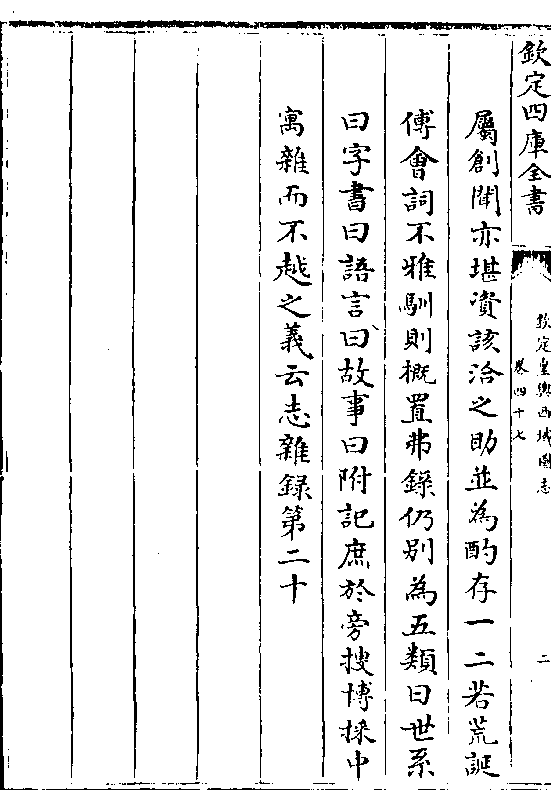 欽定四庫全書
欽定皇輿西域圖志
卷四十七
二
屬創聞亦堪資該洽之助並為酌存一二若荒誕
傅會詞不雅馴則概置弗錄仍別為五類曰世系
曰字書曰語言曰故事曰附記庶於旁搜博採中
寓雜而不越之義云志雜録第二十